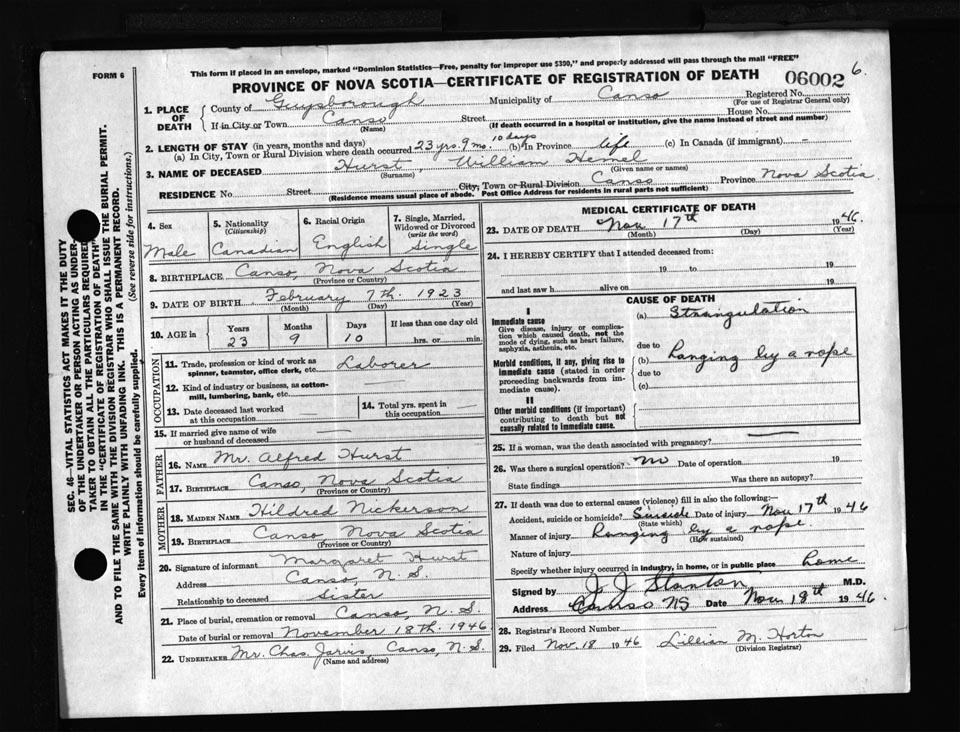 This form if placed in an envelope, marked "Dominion Statistics—Free, penalty for improper use $300," and properly addressed will pass through the mail "FREE"
FORM 6
PROVINCE OF NOVA SCOTIA—CERTIFICATE OF REGISTRATION OF DEATH
06002 6.
1. PLACE OF DEATH
County of Guysborough Municipality of Canso Registered No.
(For use of Registrar General only)
If in City or Town Canso Street House No.
(Name) (If death occurred in a hospital or institution, give the name instead of street and number)
2. LENGTH OF STAY (in years, months and days)
(a) In City, Town or Rural Division where death occurred 23 yrs. 9 mo. 10 days (b) In Province life (c) In Canada (if immigrant) —
3. NAME OF DECEASED Hurst, William
(Surname) (Given name or names)
RESIDENCE No. Street City, Town or Rural Division Canso Province Nova Scotia
(Residence means usual place of abode. Post Office Address for residents in rural parts not sufficient)
4. Sex Male
5. Nationality (Citizenship) Canadian
6. Racial Origin English
7. Single, Married, Widowed or Divorced (write the word) Single
8. BIRTHPLACE Canso, Nova Scotia
(Province or Country)
9. DATE OF BIRTH February 7th. 1923
(Month) (Day) (Year)
10. AGE in Years Months Days If less than one day old
23 9 10 hrs. or min.
OCCUPATION
11. Trade, profession or kind of work as spinner, teamster, office clerk, etc. Laborer
12. Kind of industry or business, as cotton-mill, lumbering, bank, etc. —
13. Date deceased last worked at this occupation
14. Total yrs. spent in this occupation —
15. If married give name of wife or husband of deceased —
FATHER
16. NAME Mr. Alfred Hurst
17. BIRTHPLACE Canso, Nova Scotia
(Province or Country)
MOTHER
18. MAIDEN NAME Hildred Nickerson
19. BIRTHPLACE Canso, Nova Scotia
(Province or Country)
20. Signature of informant Margaret Hurst
Address Canso, N.S.
Relationship to deceased Sister
21. Place of burial, cremation or removal Canso, N.S.
Date of burial or removal November 18th. 1946
22. UNDERTAKER Mr. Chas. Jarvis, Canso, N.S.
(Name and address)
MEDICAL CERTIFICATE OF DEATH
23. DATE OF DEATH Nov 17th 1946.
(Month) (Day) (Year)
24. I HEREBY CERTIFY that I attended deceased from:
19 to 19
and last saw h alive on 19
CAUSE OF DEATH
I
Immediate cause
Give disease, injury or complication which caused death, not the mode of dying, such as heart failure, asphyxia, asthenia, etc.
(a) Strangulation
due to
Morbid conditions, if any, giving rise to immediate cause (stated in order proceeding backwards from immediate cause).
(b) Hanging by a rope
due to
(c)
II
Other morbid conditions (if important) contributing to death but not causally related to immediate cause.
25. If a woman, was the death associated with pregnancy? —
26. Was there a surgical operation? no Date of operation 19
State findings Was there an autopsy?
27. If death was due to external causes (violence) fill in also the following:—
Accident, suicide or homicide? Suicide Date of injury Nov 17th 1946
(State which)
Manner of injury Hanging by a rope
(How sustained)
Nature of injury
Specify whether injury occurred in industry, in home, or in public place home
Signed by J J Stanton M.D.
Address Canso NS Date Nov 18th 1946.
28. Registrar's Record Number
29. Filed Nov. 18 1946 Lillian M. Horton
(Division Registrar)
SEC. 46—VITAL STATISTICS ACT MAKES IT THE DUTY
OF THE UNDERTAKER OR PERSON ACTING AS UNDER-
TAKER TO OBTAIN ALL THE PARTICULARS REQUIRED
IN THE "CERTIFICATE OF REGISTRATION OF DEATH"
AND TO FILE THE SAME WITH THE DIVISION REGISTRAR WHO SHALL ISSUE THE BURIAL PERMIT.
WRITE PLAINLY WITH UNFADING INK. THIS IS A PERMANENT RECORD.
Every item of information should be carefully supplied. (See reverse side for instructions.)